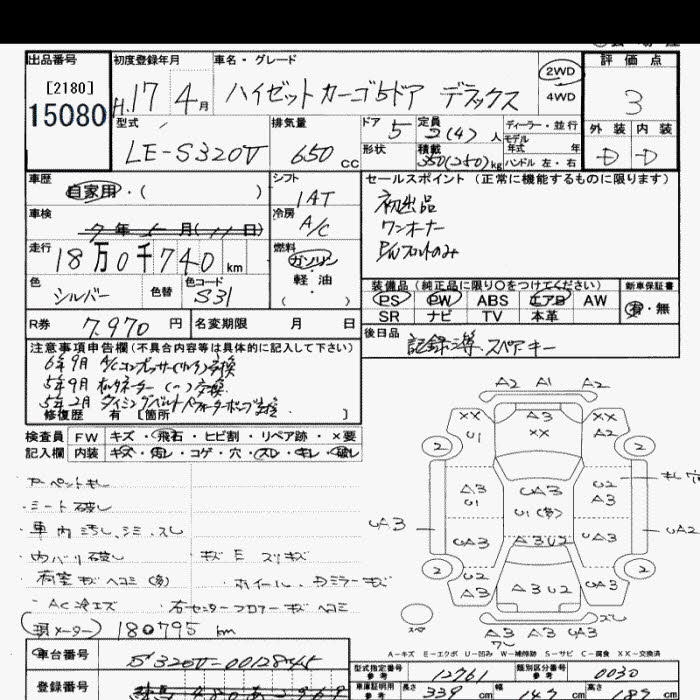 出品番号
[2180]
15080
初度登録年月
H.17年4月
車名・グレード
ハイゼットカーゴ5ドア デラックス
2WD
4WD
評価点
3
外装 内装
D D
型式
LE-S320V
排気量
650 cc
ドア 5
形状
定員 2(4)人
積載 350(250)kg
ディーラー・並行
モデル年式 年
ハンドル 左・右
車歴
自家用・( )
車検
走行
18万0千740km
色
シルバー
色替
色コード
S31
シフト
1AT
冷房
A/C
燃料
ガソリン
軽油
( )
セールスポイント (正常に機能するものに限ります)
初出品
ワンオーナー
P/Wフロントのみ
装備品 (純正品に限り○をつけてください)
PS PW ABS エアB AW
SR ナビ TV 本革
新車保証書
有・無
後日品
記録簿、スペアキー
R券 7,970円
名変期限 月 日
注意事項申告欄 (不具合内容等は具体的に記入して下さい)
6年9月 A/Cコンプレッサー(リビルト)交換
5年9月 オルタネーター(〃)交換
5年2月 タイミングベルト、ウォーターポンプ交換
修復歴 有 [箇所 ]
検査員記入欄
FW キズ・飛石・ヒビ割・リペア跡・×要
内装 キズ・汚レ・コゲ・穴・スレ・キレ・破レ
シート破レ
車内汚レ、シミ、スレ
内バリ破レ
キズ E スリキズ
荷室キズヘコミ(多)
ホイール、ドアミラーキズ
AC冷エズ
右センターフロアーキズヘコミ
(現メーター) 180795 km
A2 A1 A2
XX A3 XX
U1 XX A2
2 2
A3 UA3 U2
U1 U1(多) A3
UA3 UA2
UA3 A3U2 UA3
2 2
U2 A3U2 UA3
A3
スペア
A3 A3 UA3
A-キズ E-エクボ U-凹み W-補修跡 S-サビ C-腐食 XX-交換済
車台番号
S320V-0012845
登録番号
型式指定番号 参考
12761
類別区分番号 参考
0030
車庫証明用 参考
長さ 339 cm
幅 147 cm
高さ 187 cm